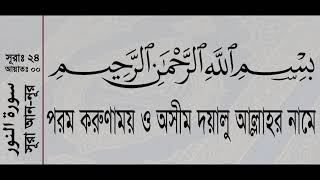 সূরাঃ ২৪
আয়াতঃ ০০
سورة النور
সূরা আন-নূর
بِسْمِ ٱللَّهِ ٱلرَّحْمَٰنِ ٱلرَّحِيمِ
পরম করুণাময় ও অসীম দয়ালু আল্লাহর নামে